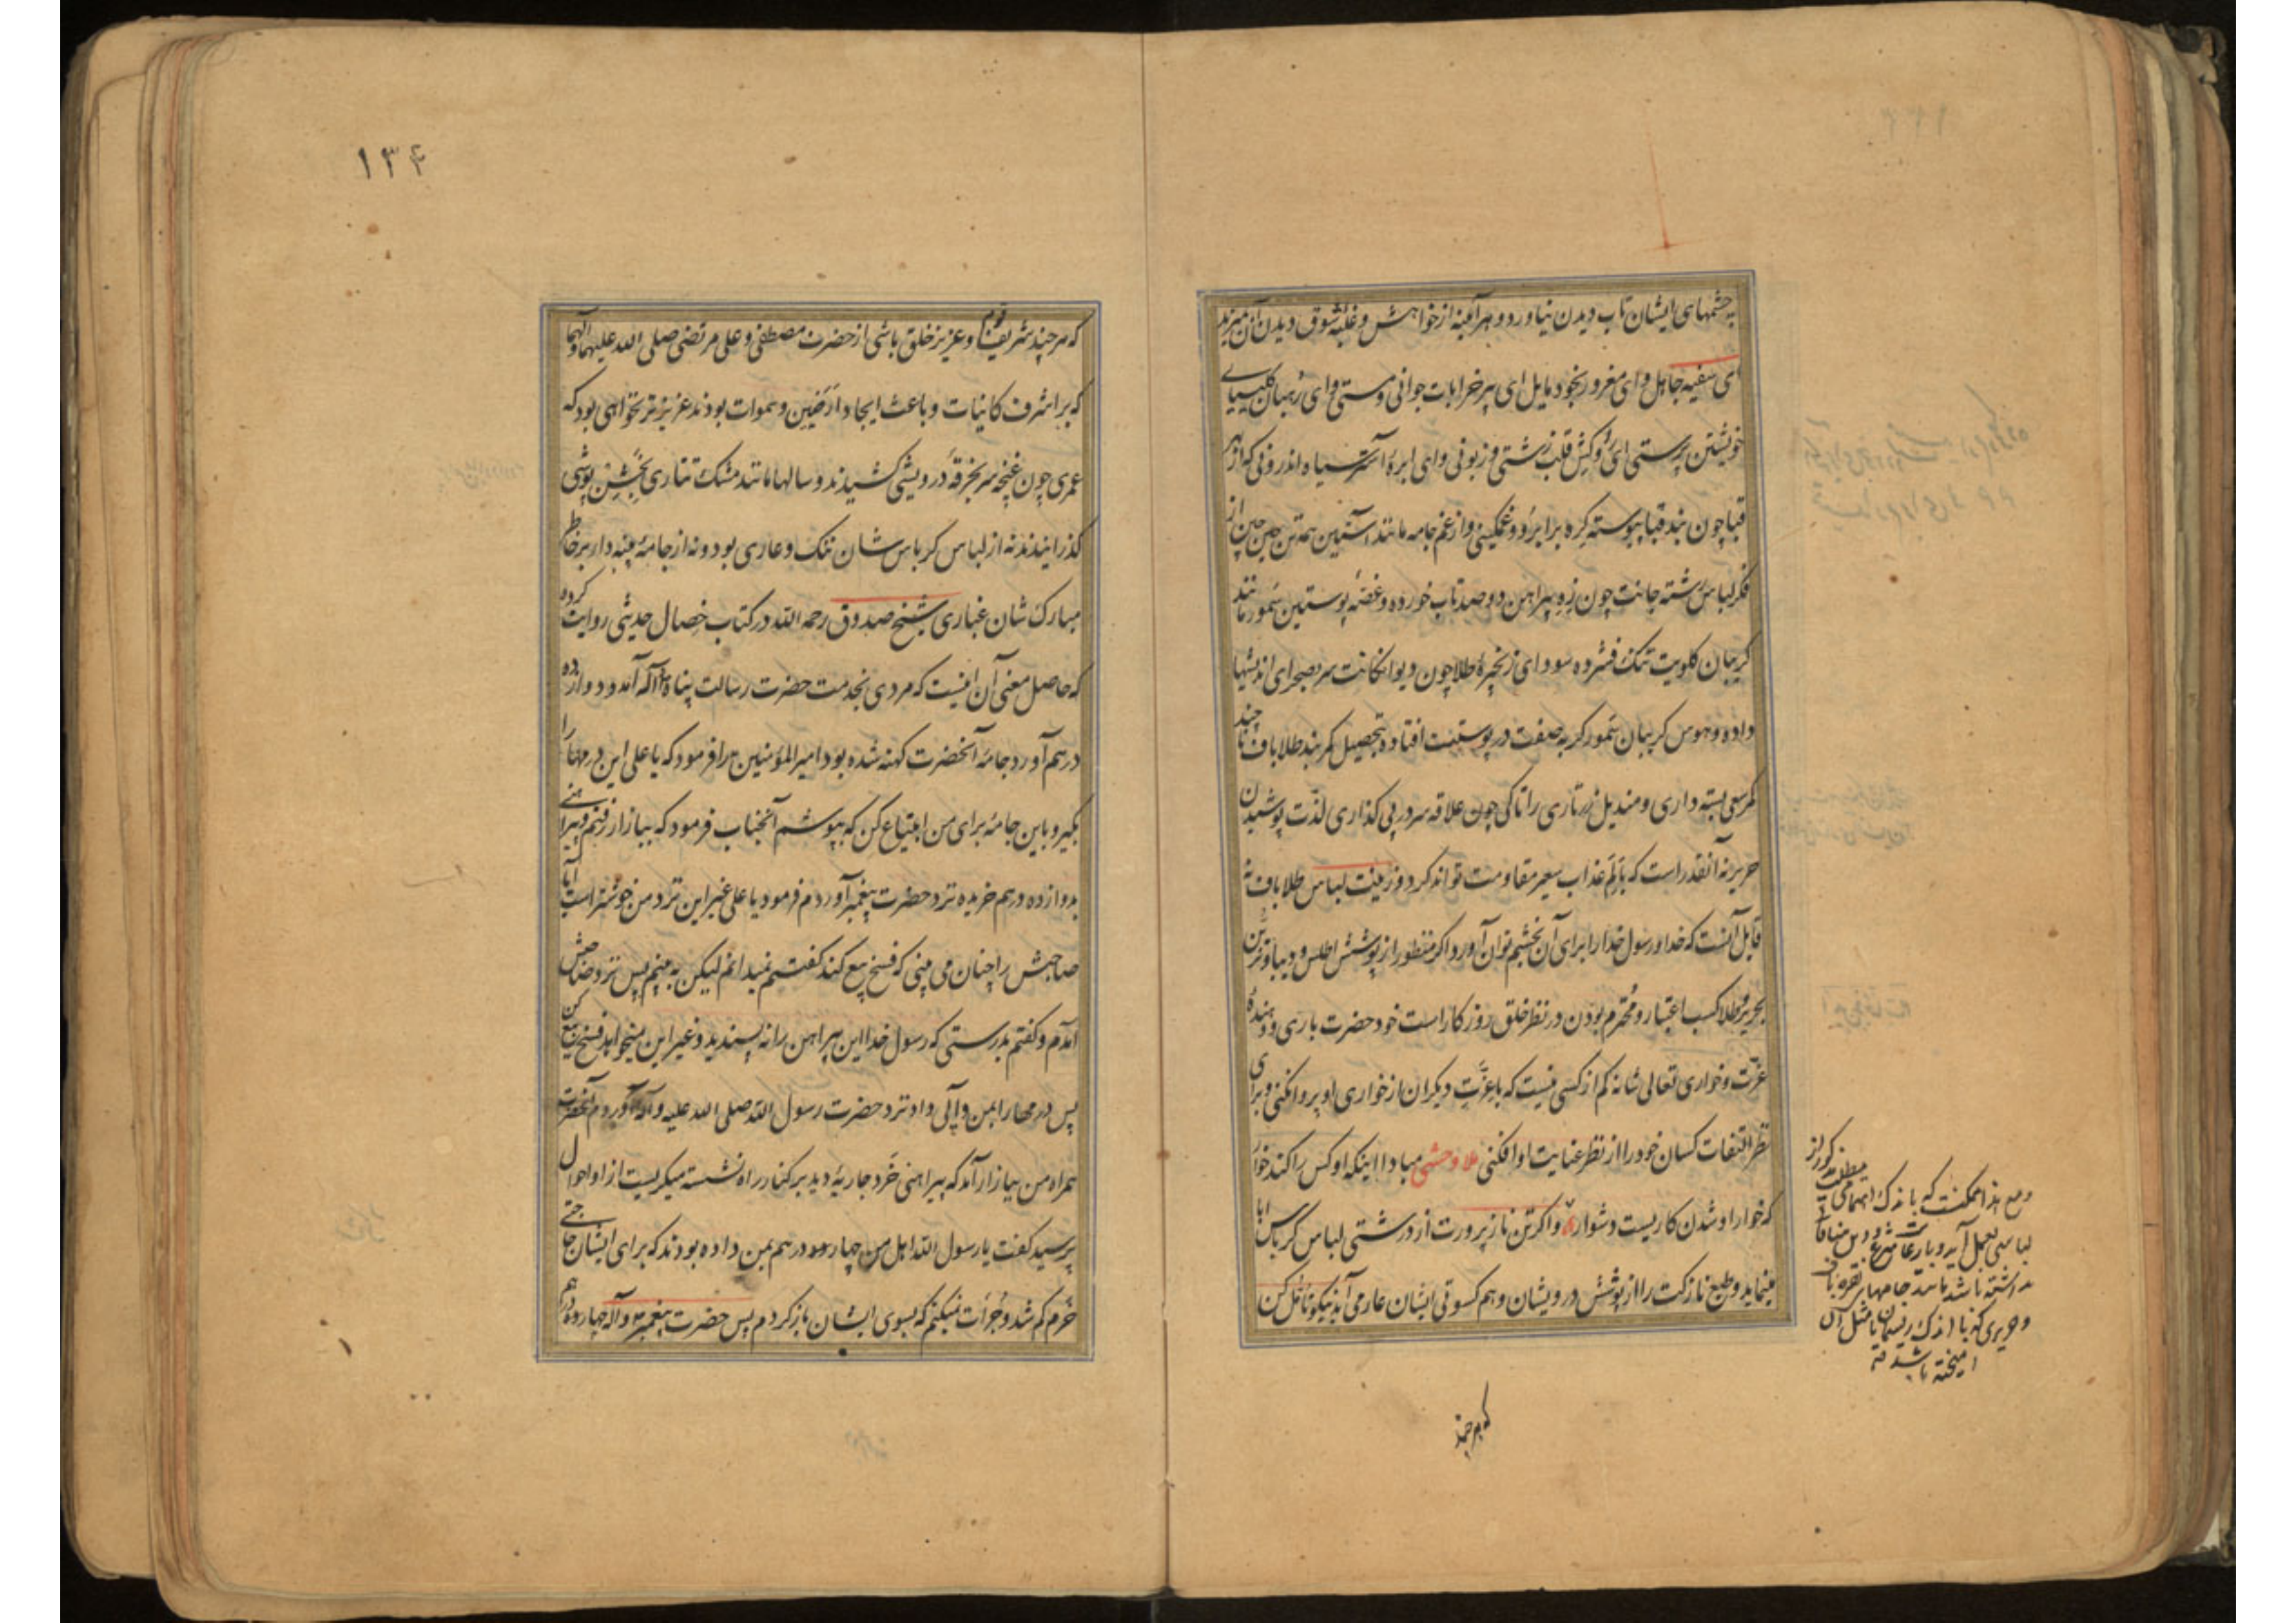 چشمهای ایشان تاب دیدن نیاورد و هرآینه از خواهش و غلبهٔ شوق دیدن آن میرند
ای سفیه جاهل و ای مغرور بخود مایل ای پیر خرابات جوانی و مستی و ای رهبان کلیسیای
خویشتن پرستی ای قلب زشتی و زبونی و ای ابرهٔ آستر سیاه اندرونی که از بهر
قبا چون بند قبا پیوسته کره بر ابرو و غمکینی و از غم جامه مانند آستین همه تن چین چین از
فکر لباس رشته جانت چون زه پیراهن دو صد تاب خورده و غصهٔ پوستین سمور مانند
کریبان کلویت تنک فشرده سودای زنجیرهٔ طلا چون دیوانکانت سر بصحرای اندیشها
داده و هوس کریبان سمور کربه صفت در پوستینت افتاده بتحصیل کمربند طلاباف تا چند
کمر سعی بسته داری و مندیل زرتاری را تا کی چون علاقه سر در پی کذاری لذت پوشیدن
حریر نه آنقدر است که با الم عذاب سعیر مقاومت تواند کرد و زینت لباس طلاباف نه
قابل آنست که خدا و رسول خدا را برای آن بخشم توان آورد اکر منظور از پوشش اطلس و دیبا و تزین
بحریر و طلا کسب اعتبار و محترم بودن در نظر خلق روزکار است خود حضرت باری و دهندهٔ
عزت و خواری تعالی شانه کم از کسی نیست که با عزت دیکران از خواری او پروا نکنی و برای
نظر التفات کسان خود را از نظر عنایت او افکنی ملا وحشی مبادا اینکه او کس را کند خوار
که خوار او شدن کاریست دشوار و اکر تن نازپرورت از درشتی لباس کرباس ابا
مینماید و طبع نازکت را از پوشش درویشان و هم کسوتی ایشان عار می آید نیکو تامل کن
که هر چند
ومع هذا ممکنست که باندک اهتمامی
لباسی بعمل آید و با رعایت شرع در وی منافات
نداشته باشد مانند جامهای نقره بافی
و حریری که با اندک ریسمان یا مثل آن
آمیخته باشد
۱۳۴
که هر چند شریف قوم و عزیز خلق باشی از حضرت مصطفی و علی مرتضی صلی الله علیهما و آلهما
که بر اشرف کاینات و باعث ایجاد ارضین و سموات بودند عزیزتر نخواهی بود که
عمری چون غنچه سر بخرقهٔ درویشی کشیدند و سالها مانند مشک تتاری بخشن پوشی
کذرانیدند نه از لباس کرباس شان ننک و عاری بود و نه از جامهٔ پنبه دار بر خاطر
مبارک شان غباری شیخ صدوق رحمه الله در کتاب خصال حدیثی روایت کرده
که حاصل معنی آن اینست که مردی بخدمت حضرت رسالت پناه آمد و دوازده
درهم آورد جامهٔ آنحضرت کهنه شده بود امیرالمؤمنین را فرمود که یا علی این درمها را
بکیر و باین جامهٔ برای من ابتیاع کن که بپوشم آنجناب فرمود که ببازار رفتم و پیراهنی
بدوازده درهم خریده نزد حضرت پیغمبر آوردم فرمود یا علی غیر این نزد من خوشتر است آیا
صاحبش را چنان می بینی که فسخ بیع کند کفتم نمیدانم لیکن به بینم پس نزد صاحبش
آمدم و کفتم بدرستی که رسول خدا این پیراهن را نه پسندید و غیر این میخواهد فسخ بیع کن
پس درمها را بمن واپس داد نزد حضرت رسول الله صلی الله علیه و آله آوردم آنحضرت
همراه من ببازار آمد که پیراهنی خرد جاریهٔ دید بر کنار راه نشسته میکریست از او احوال
پرسید کفت یا رسول الله اهل من چهار درهم بمن داده بودند که برای ایشان حاجتی
خرم کم شد و جرأت نمیکنم که بسوی ایشان بازکردم پس حضرت پیغمبر و آله چهار درهم